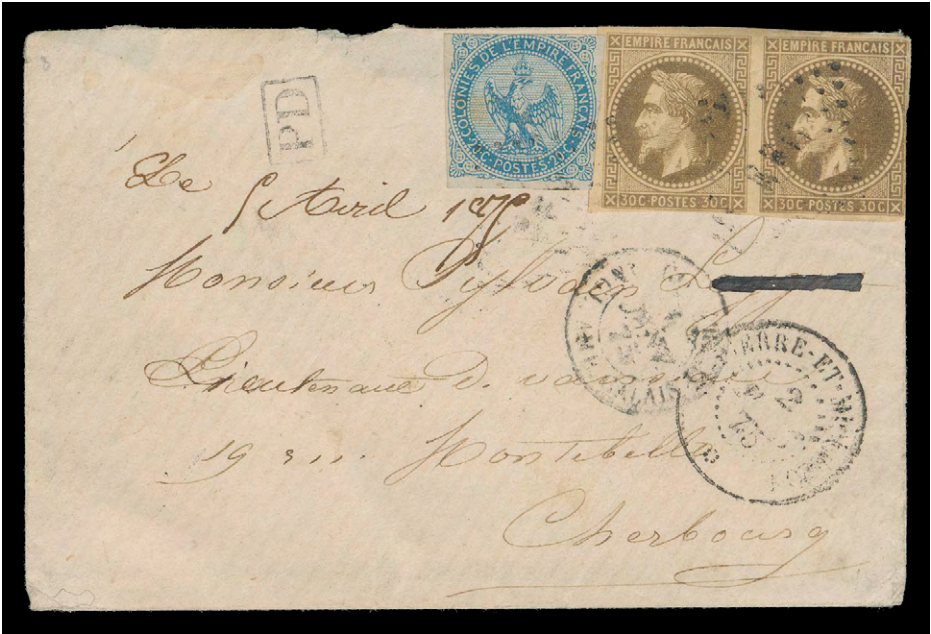 COLONIES DE L'EMPIRE FRANÇAIS
20C·POSTES·20C
EMPIRE FRANÇAIS
30C·POSTES·30C
EMPIRE FRANÇAIS
30C·POSTES·30C
PD
Le
5 Avril 1875
Monsieur Sylvain
Lieutenant de vaisseau
19 rue Montebello
Cherbourg
ERRE-ET-MI
2
75